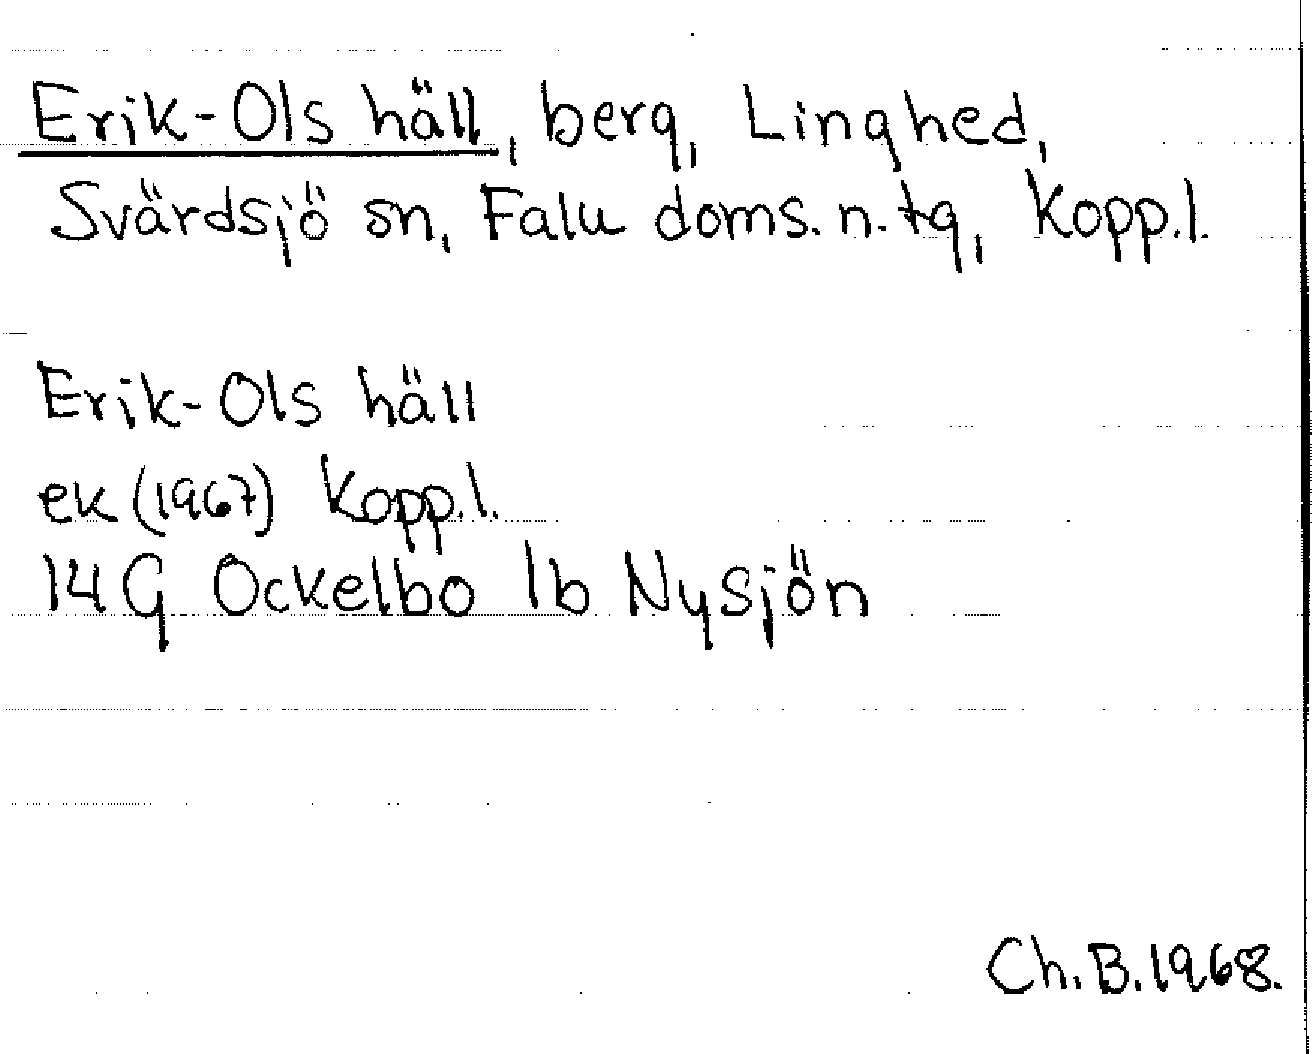 Erik-Ols häll, berg, Linghed,
Svärdsjö sn, Falu doms. n. tg, Kopp.l.
Erik-Ols häll
ek (1967) Kopp.l.
14 G Ockelbo 1b Nysjön
Ch. B. 1968.